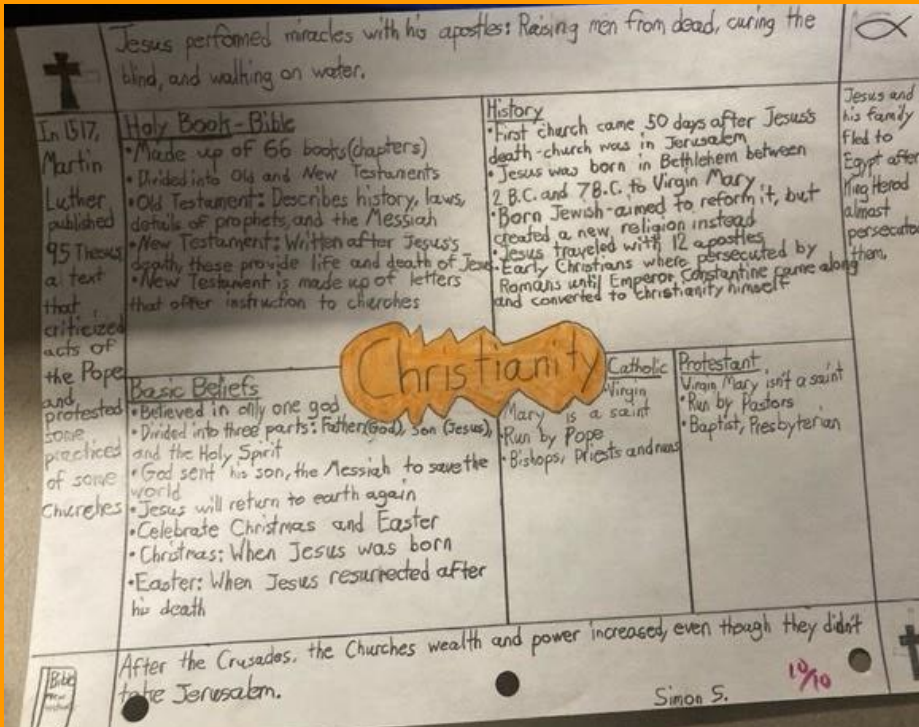 Jesus performed miracles with his apostles: Raising men from dead, curing the
blind, and walking on water.
In 1517,
Martin
Luther
published
95 Theses
a text
that
criticized
acts of
the Pope
and
protested
some
practices
of some
Churches
Holy Book-Bible
• Made up of 66 books(chapters)
• Divided into Old and New Testaments
• Old Testament: Describes history, laws,
details of prophets, and the Messiah
• New Testament: Written after Jesus's
death, these provide life and death of Jesus
• New Testament is made up of letters
that offer instruction to cherches
History
• First church came 50 days after Jesus's
death-church was in Jerusalem
• Jesus was born in Bethlehem between
2 B.C. and 7 B.C. to Virgin Mary
• Born Jewish-aimed to reform it, but
created a new religion instead
• Jesus traveled with 12 apostles
• Early Christians where persecuted by
Romans until Emperor Constantine came along
and converted to Christianity himself
Jesus and
his family
fled to
Egypt after
King Herod
almost
persecuted
them.
Christianity
Basic Beliefs
• Believed in only one god
• Divided into three parts: Father(God), Son (Jesus),
and the Holy Spirit
• God sent his son, the Messiah to save the
world
• Jesus will return to earth again
• Celebrate Christmas and Easter
• Christmas: When Jesus was born
• Easter: When Jesus resurrected after
his death
Catholic
• Virgin
Mary is a saint
• Run by Pope
• Bishops, priests and nuns
Protestant
Virgin Mary isn't a saint
• Run by Pastors
• Baptist, Presbyterian
Bible
New
After the Crusades, the Churches wealth and power increased, even though they didn't
take Jerusalem.
Simon S.
10/10